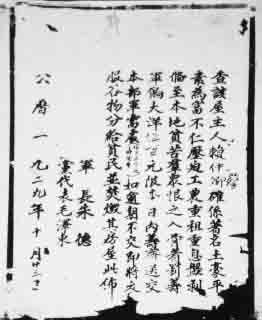 查該屋主人賴伊確係著名土豪平
素為富不仁壓迫工農重租重息盤剝
本地貧苦羣衆恨之入籌
軍餉大洋元限日內籌齊送交
本部軍需處如逾期不交即將衣
服物分給貧民並焚燬其房屋此佈
軍長朱德
軍代表毛澤東
公曆一九二九年十月日